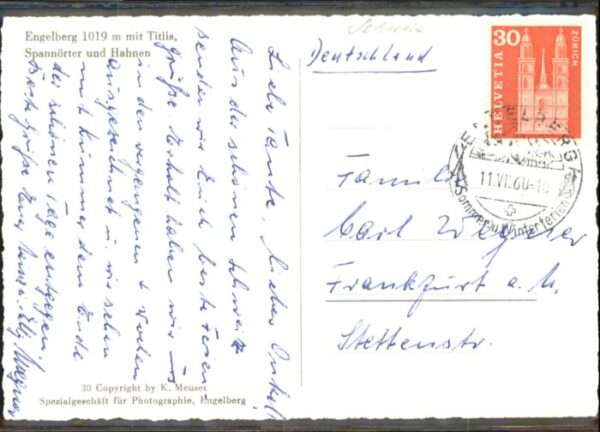 Engelberg 1019 m mit Titlis,
Spannörter und Hahnen
Liebe Tante, lieber Onkel!
Aus der schönen Schweiz
senden wir Euch beste Ferien-
grüße. Erholt haben wir uns
in den vergangenen 2 Wochen
ausgezeichnet u. wir sehen
mit Kummer dem Ende
der schönen Tage entgegen.
Beste Grüße Eure
30 Copyright by K. Meuser
Spezialgeschäft für Photographie, Engelberg
Schweiz
Deutschland
30
HELVETIA
ZÜRICH
ENGELBERG
11.VI.60-18
Sommer u. Winterferien
Familie
Carl Wegener
Frankfurt a. M.
Stettenstr.